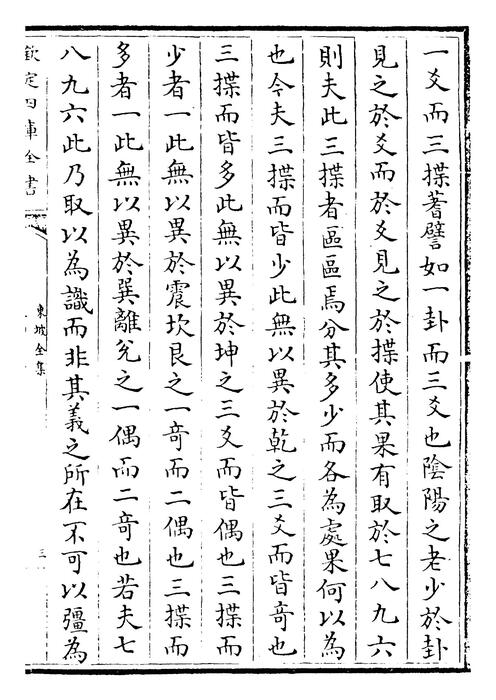 一爻而三揲蓍譬如一卦而三爻也陰陽之老少於卦
見之於爻而於爻見之於揲使其果有取於七八九六
則夫此三揲者區區焉分其多少而各為處果何以為
也今夫三揲而皆少此無以異於乾之三爻而皆竒也
三揲而皆多此無以異於坤之三爻而皆偶也三揲而
少者一此無以異於震坎艮之一竒而二偶也三揲而
多者一此無以異於巽離兊之一偶而二竒也若夫七
八九六此乃取以為識而非其義之所在不可以彊為
欽定四庫全書
東坡全集